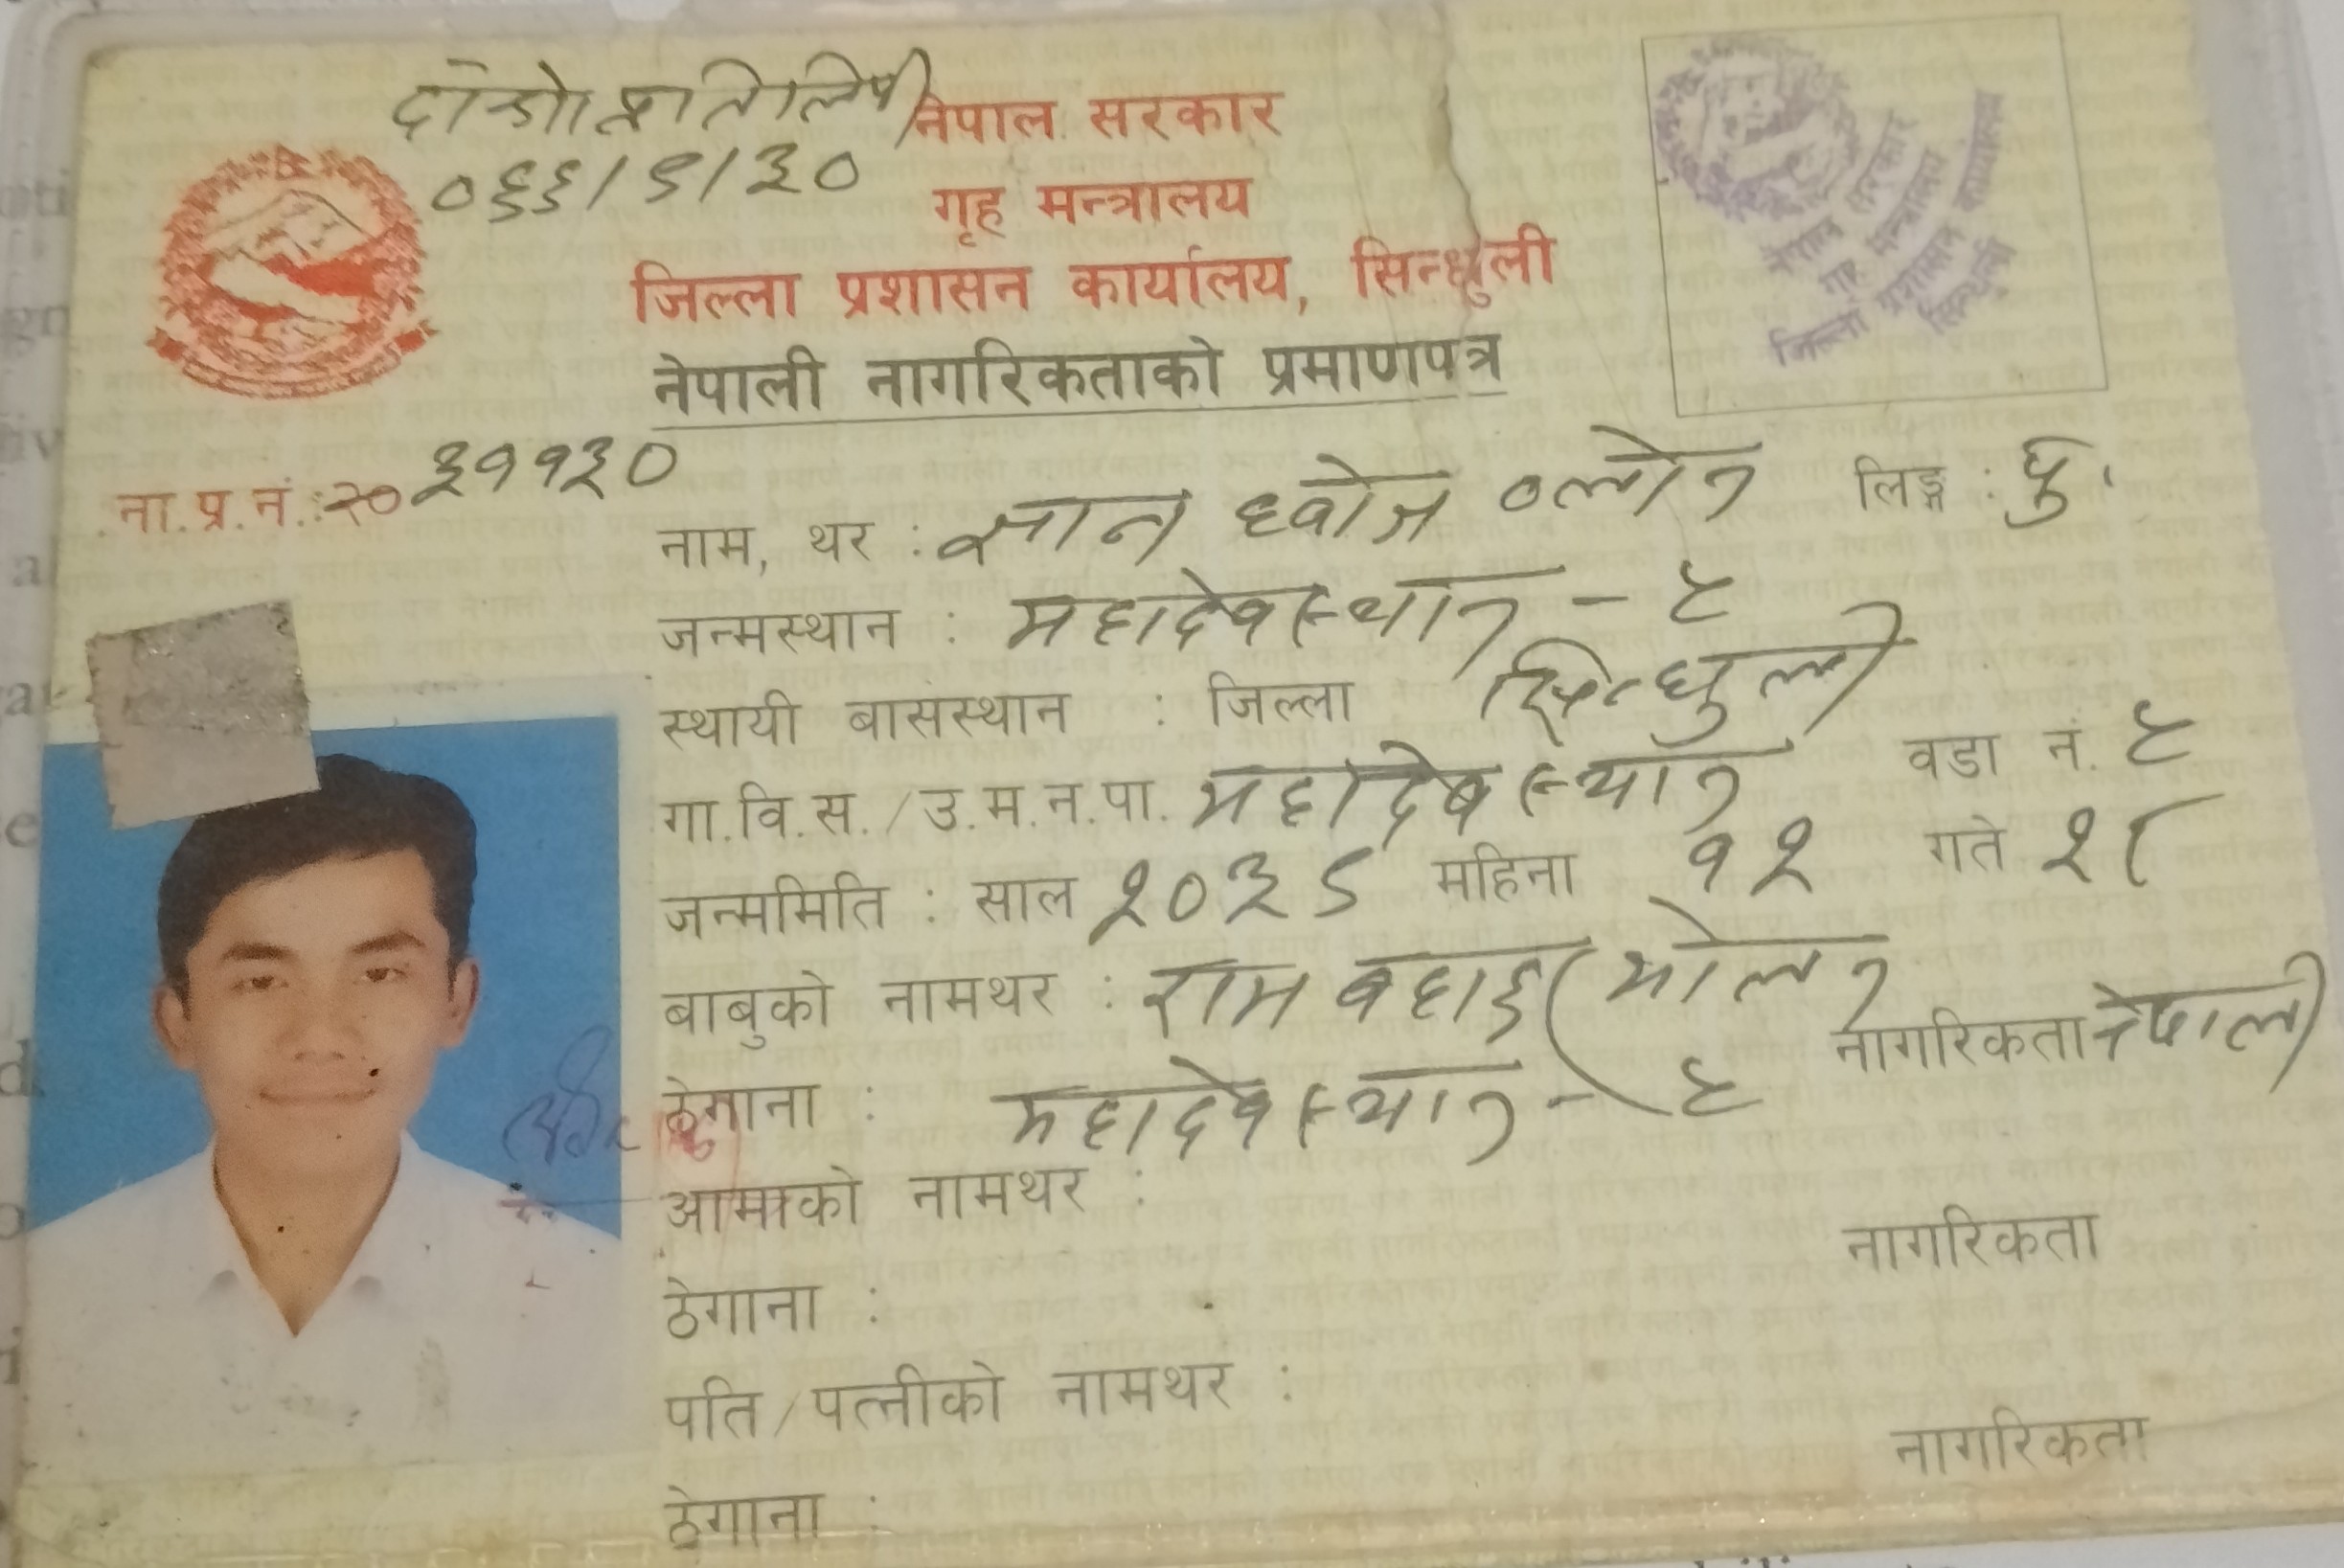 दोस्रो प्रतिलिपी
नेपाल सरकार
०६६/९/३०
गृह मन्त्रालय
जिल्ला प्रशासन कार्यालय, सिन्धुली
नेपाली नागरिकताको प्रमाणपत्र
नेपाल सरकार
गृह मन्त्रालय
जिल्ला प्रशासन कार्यालय
सिन्धुली
ना.प्र.नं.:२० ३११३०
नाम, थर : ज्ञान ध्वोज ब्लोन लिङ्ग : पु.
जन्मस्थान : महादेवस्थान - ८
स्थायी बासस्थान : जिल्ला सिन्धुली
गा.वि.स./उ.म.न.पा. महादेवस्थान वडा नं. ८
जन्ममिति : साल २०३८ महिना १२ गते २८
बाबुको नामथर : राम बहादुर मोलन
नागरिकता नेपाली
ठेगाना : महादेवस्थान - ८
आमाको नामथर :
नागरिकता
ठेगाना :
पति/पत्नीको नामथर :
नागरिकता
ठेगाना :